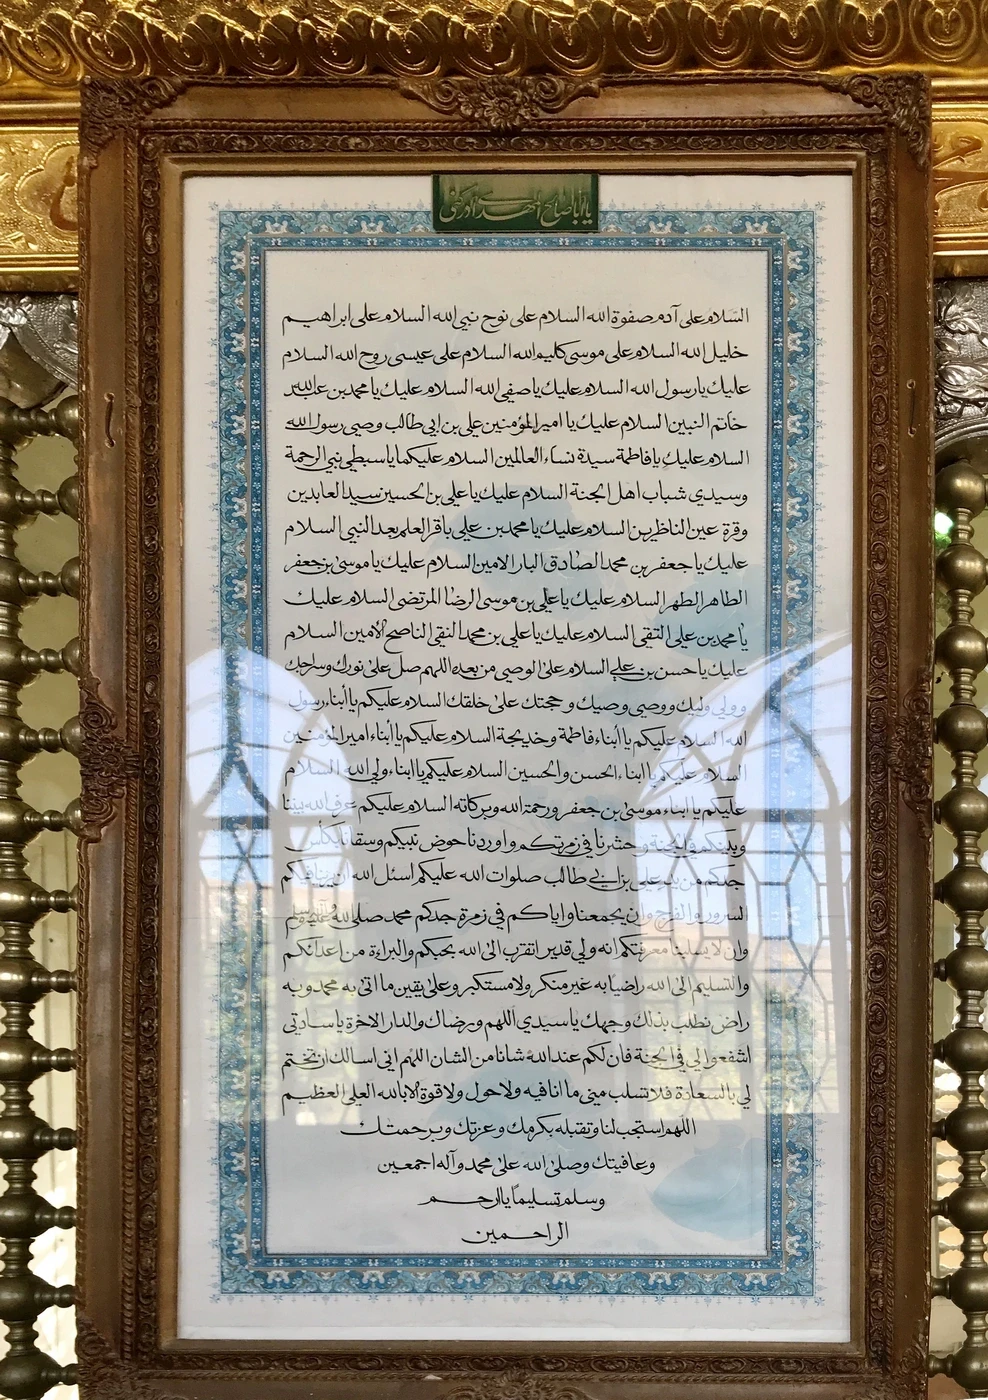 يا أبا صالح المهدي أدركني
السلام على آدم صفوة الله السلام على نوح نبي الله السلام على ابراهيم
خليل الله السلام على موسى كليم الله السلام على عيسى روح الله السلام
عليك يا رسول الله السلام عليك يا صفي الله السلام عليك يا محمد بن عبد الله
خاتم النبيين السلام عليك يا امير المؤمنين علي بن ابي طالب وصي رسول الله
السلام عليك يا فاطمة سيدة نساء العالمين السلام عليكما يا سبطي نبي الرحمة
وسيدي شباب اهل الجنة السلام عليك يا علي بن الحسين سيد العابدين
وقرة عين الناظرين السلام عليك يا محمد بن علي باقر العلم بعد النبي السلام
عليك يا جعفر بن محمد الصادق البار الامين السلام عليك يا موسى بن جعفر
الطاهر الطهر السلام عليك يا علي بن موسى الرضا المرتضى السلام عليك
يا محمد بن علي التقي السلام عليك يا علي بن محمد النقي الناصح الأمين السلام
عليك يا حسن بن علي السلام على الوصي من بعده اللهم صل على نورك وسراجك
وولي وليك ووصي وصيك وحجتك على خلقك السلام عليكم يا أبناء رسول
الله السلام عليكم يا أبناء فاطمة وخديجة السلام عليكم يا أبناء امير المؤمنين
السلام عليكم يا ابناء الحسن والحسين السلام عليكم يا ابناء ولي الله السلام
عليكم يا ابناء موسى بن جعفر ورحمة الله وبركاته السلام عليكم عرف الله بيننا
وبينكم في الجنة وحشرنا في زمرتكم واوردنا حوض نبيكم وسقانا بكأس
جدكم من يد علي بن ابي طالب صلوات الله عليكم اسئل الله ان يرينا فيكم
السرور والفرج وان يجمعنا واياكم في زمرة جدكم محمد صلى الله عليه وسلم
وان لا يسلبنا معرفتكم انه ولي قدير اتقرب الى الله بحبكم والبراءة من اعدائكم
والتسليم الى الله راضيا به غير منكر ولا مستكبر وعلى يقين ما اتى به محمد وبه
راض نطلب بذلك وجهك يا سيدي اللهم ورضاك والدار الاخرة يا سادتي
اشفعوا لي في الجنة فان لكم عند الله شانا من الشان اللهم اني اسالك ان تختم
لي بالسعادة فلا تسلب مني ما انا فيه ولا حول ولا قوة الا بالله العلي العظيم
اللهم استجب لنا وتقبله بكرمك وعزتك وبرحمتك
وعافيتك وصلى الله على محمد وآله اجمعين
وسلم تسليماً يا ارحم
الراحمين